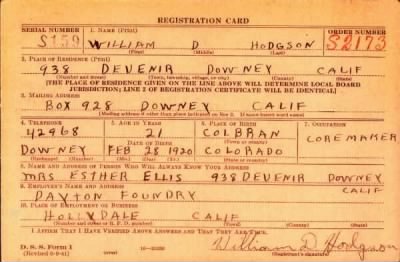 REGISTRATION CARD
SERIAL NUMBER 1. NAME (Print) ORDER NUMBER
S159 WILLIAM D HODGSON S2173
(First) (Middle) (Last)
2. PLACE OF RESIDENCE (Print)
938 DEVENIR DOWNEY CALIF
(Number and street) (Town, township, village, or city) (County) (State)
[THE PLACE OF RESIDENCE GIVEN ON THE LINE ABOVE WILL DETERMINE LOCAL BOARD
JURISDICTION; LINE 2 OF REGISTRATION CERTIFICATE WILL BE IDENTICAL]
3. MAILING ADDRESS
BOX 928 DOWNEY CALIF
[Mailing address if other than place indicated on line 2. If same insert word same]
4. TELEPHONE 5. AGE IN YEARS 6. PLACE OF BIRTH 7. OCCUPATION
42968 21 COLBRAN COREMAKER
DATE OF BIRTH
DOWNEY FEB 28 1920 COLORADO
(Exchange) (Number) (Mo.) (Day) (Yr.) (State or country)
8. NAME AND ADDRESS OF PERSON WHO WILL ALWAYS KNOW YOUR ADDRESS
MRS ESTHER ELLIS 938 DEVENIR DOWNEY
CALIF
9. EMPLOYER'S NAME AND ADDRESS
DAYTON FOUNDRY
10. PLACE OF EMPLOYMENT OR BUSINESS
HOLLYDALE CALIF
(Number and street or R. F. D. number) (Town) (County) (State)
I AFFIRM THAT I HAVE VERIFIED ABOVE ANSWERS AND THAT THEY ARE TRUE.
D. S. S. Form 1
(Revised 6-9-41) William D. Hodgson
(Registrant's signature)